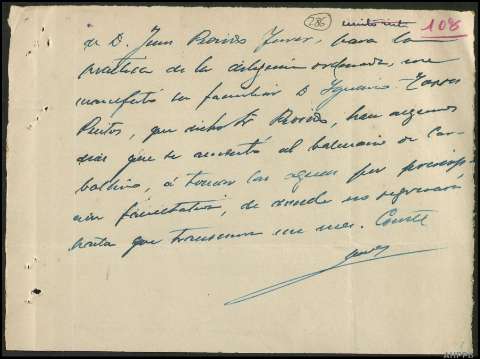 286 108
de D. Juan para la
práctica de la diligencia ordenada, me
manifestó su familiar D. Ignacio Torres
que dicho Sr. han algunos
días que se ausentó al balneario de Car-
ballino, á tomar las aguas por prescrip-
ción facultativa, de donde no regresará
hasta que transcurra un mes. Conste